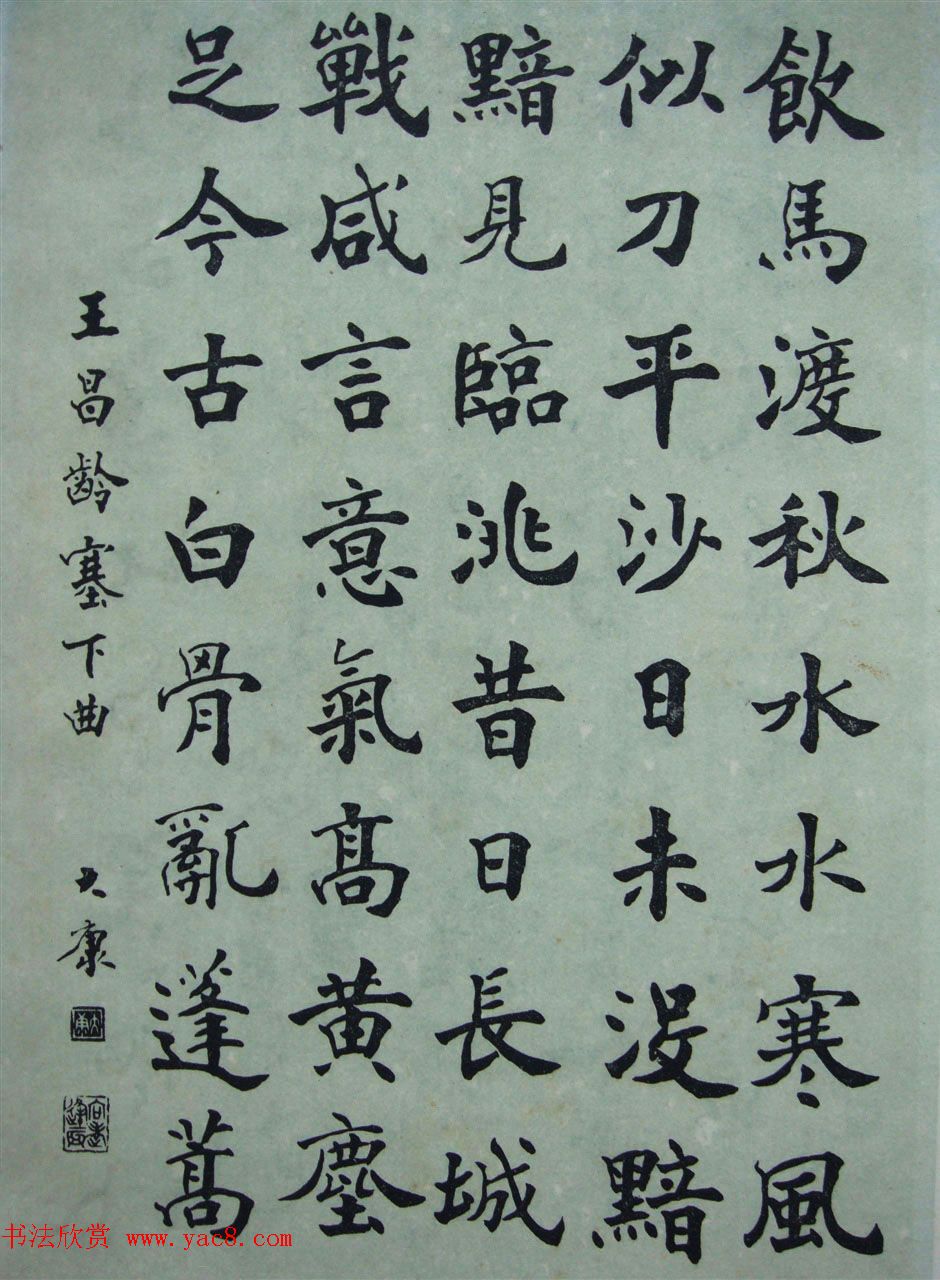 飲馬渡秋水水寒風
似刀平沙日未沒黯
黯見臨洮昔日長城
戰咸言意氣高黃塵
足今古白骨亂蓬蒿
王昌齡塞下曲
大康
书法欣赏 www.yac8.com